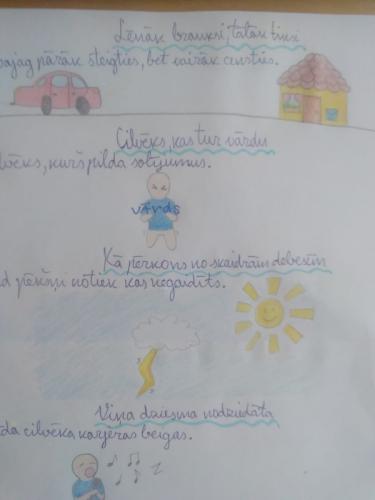 Lēnāk brauksi, tālāk tiksi
pārāk steigties, bet vairāk censties.
Cilvēks, kas tur vārdu
kurš pilda solījumus.
VĀRDS
Kā pērkons no skaidrām debesīm
pēkšņi notiek kas negaidīts.
Viņa dziesma nodziedāta
cilvēka karjeras beigas.